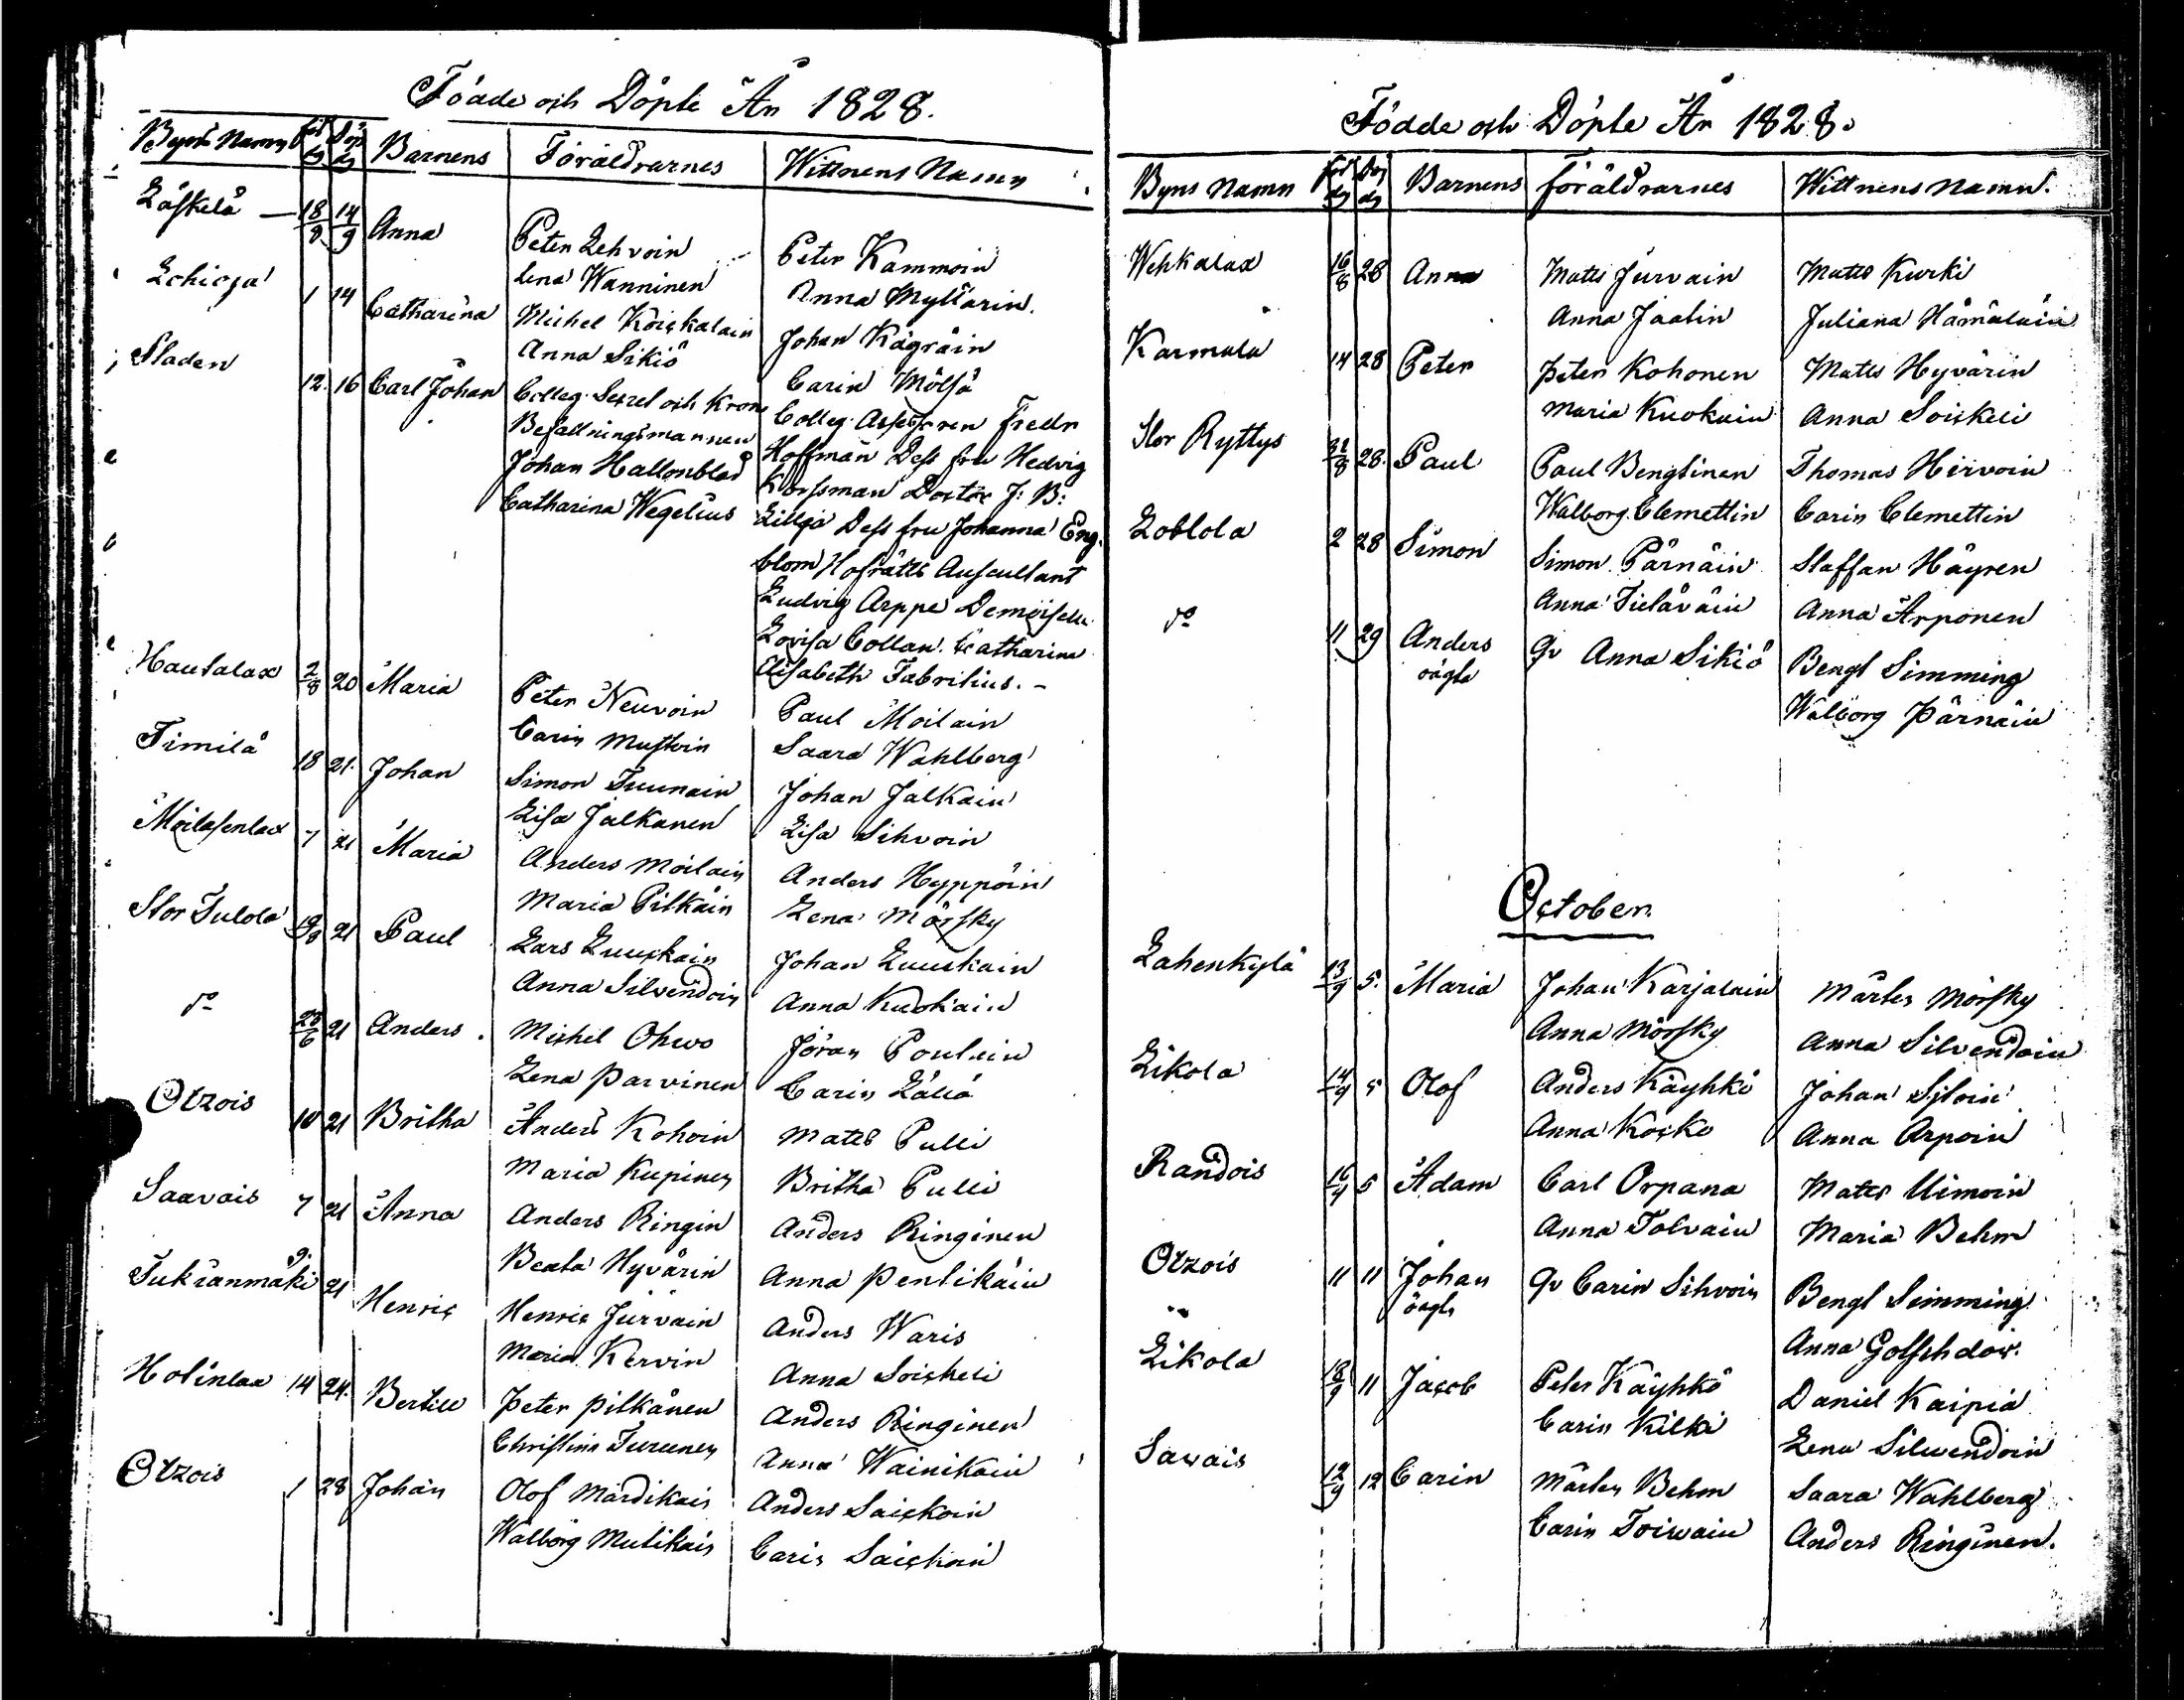 Födde och Döpte År 1828.
Byns Namn Föd. dg Döp. dg Barnens Föräldrarnes Wittnens Namn
Läskelä — 18/8 14/9 Anna Peter Lehvoin Peter Kammoin
Lena Wanninen Anna Myllärin.
1 14 Catharina Michel Koickalain Johan Kägräin
Anna Sikiö Carin Mölsä
Staden 12. 16 Carl Johan Colleg. Secret och Krono Colleg. Assessoren Fredr
Befallningsmannen Hoffman Dess fru Hedvig
Johan Hallonblad Korssman Doctor J: B:
Catharina Wegelius Lillja Dess fru Johanna Eng-
blom Hofrätts Auscultant
Ludvig Arppe Demoiselle
Lovisa Collan. Catharina
Elisabeth Fabritius. -
Hautalax 2/8 20 Maria Peter Neuvoin Paul Moilain
Carin Mustoin Saara Wahlberg
Timilä 18 21. Johan Simon Tuunain Johan Jalkain
Lisa Jalkanen Lisa Sihvoin
Moilasenlax 7 21 Maria Anders Moilain Anders Hyppöin
Maria Pitkäin Lena Mörsky
Stor Tulola 19/8 21 Paul Lars Luuckain Johan Luuckain
Anna Silvendoin Anna Kuokain
do 21 Anders. Michel Ohvo Jöran Poulain
Lena Parvinen Carin
Otzois 10 21 Britha Anders Kohoin Matts Pulli
Maria Kupinen Britha Pulli
Saavais 7 21 Anna Anders Ringin Anders Ringinen
Beata Hyvärin Anna Pentikäin
Tukianmäki 9. 21 Henric Henric Jürvain Anders Waris
Maria Kervin Anna Soickeli
Hotinlax 14 24. Bertill Peter Pitkänen Anders Ringinen
Christina Turunen Anna Wainikain
Otzois 1 28 Johan Olof Mardikain Anders Saickoin
Walborg Mutikain Carin Saickoin
Födde och Döpte År 1828.
Byns namn Föd dg Döp dg Barnens föräldrarnes Wittnens namn.
Wehkalax 16/8 28 Anna Matts Jurvain Matts Kurki
Anna Jaatin Juliana Hämäläin
Karmala 14 28 Peter Peter Kohonen Matts Hyvärin
Maria Kuokain Anna Soickeli
Stor Ryttys 31/8 28. Paul Paul Bengtinen Thomas Hirvoin
Walborg Clemettin Carin Clemettin
2 28 Simon Simon Pärnäin Staffan Häyren
Anna Tieläväin Anna Arponen
do 11 29 Anders Qv Anna Sikiö Bengt Simming
oägta Walborg Pärnäin
October.
Lahenkylä 13/9 5. Maria Johan Karjalain Mårten Mörsky
Anna Mörsky Anna Silvendoin
Likola 14/9 5 Olof Anders Käyhkö Johan
Anna Kocko Anna Arpoin
Randois 16/9 5 Adam Carl Orpana Matts Uimoin
Anna Tolvain Maria Behm
Otzois 11 11 Johan Qv Carin Sihvoin Bengt Simming
oägta Anna
Likola 18/9 11 Jacob Peter Käyhkö Daniel Kaipia
Carin Kilki Lena Silvendoin
Savais 12/9 12 Carin Mårten Behm Saara Wahlberg
Carin Toivain Anders Ringinen.